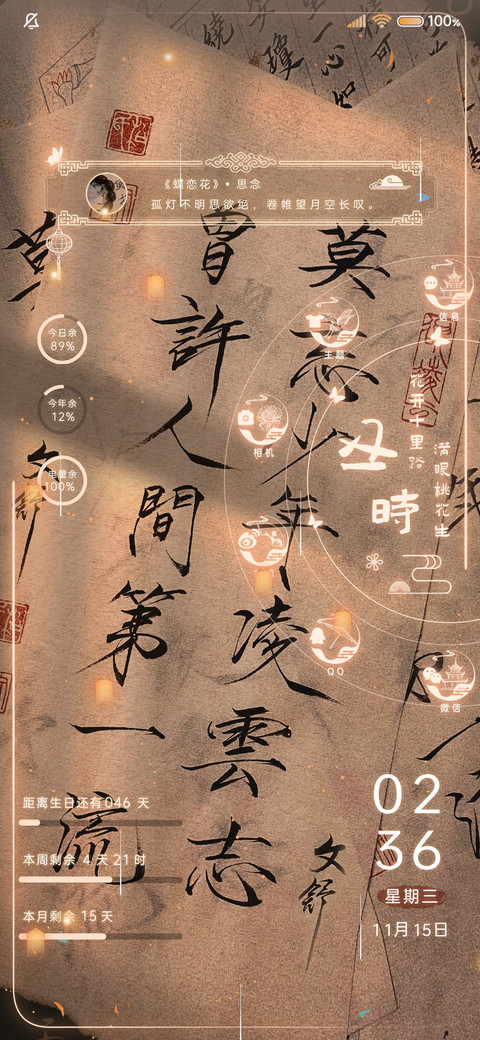 100%
《蝶恋花》·思念
孤灯不明思欲绝，卷帷望月空长叹。
莫忘少年凌雲志
曾許人間第一流
文舒
今日余
89%
今年余
12%
电量余
100%
信息
主题
相机
QQ
微信
花开千里路
满眼桃花生
丑時
距离生日还有046 天
本周剩余 4 天 21 时
本月剩余 15 天
02
36
星期三
11月15日